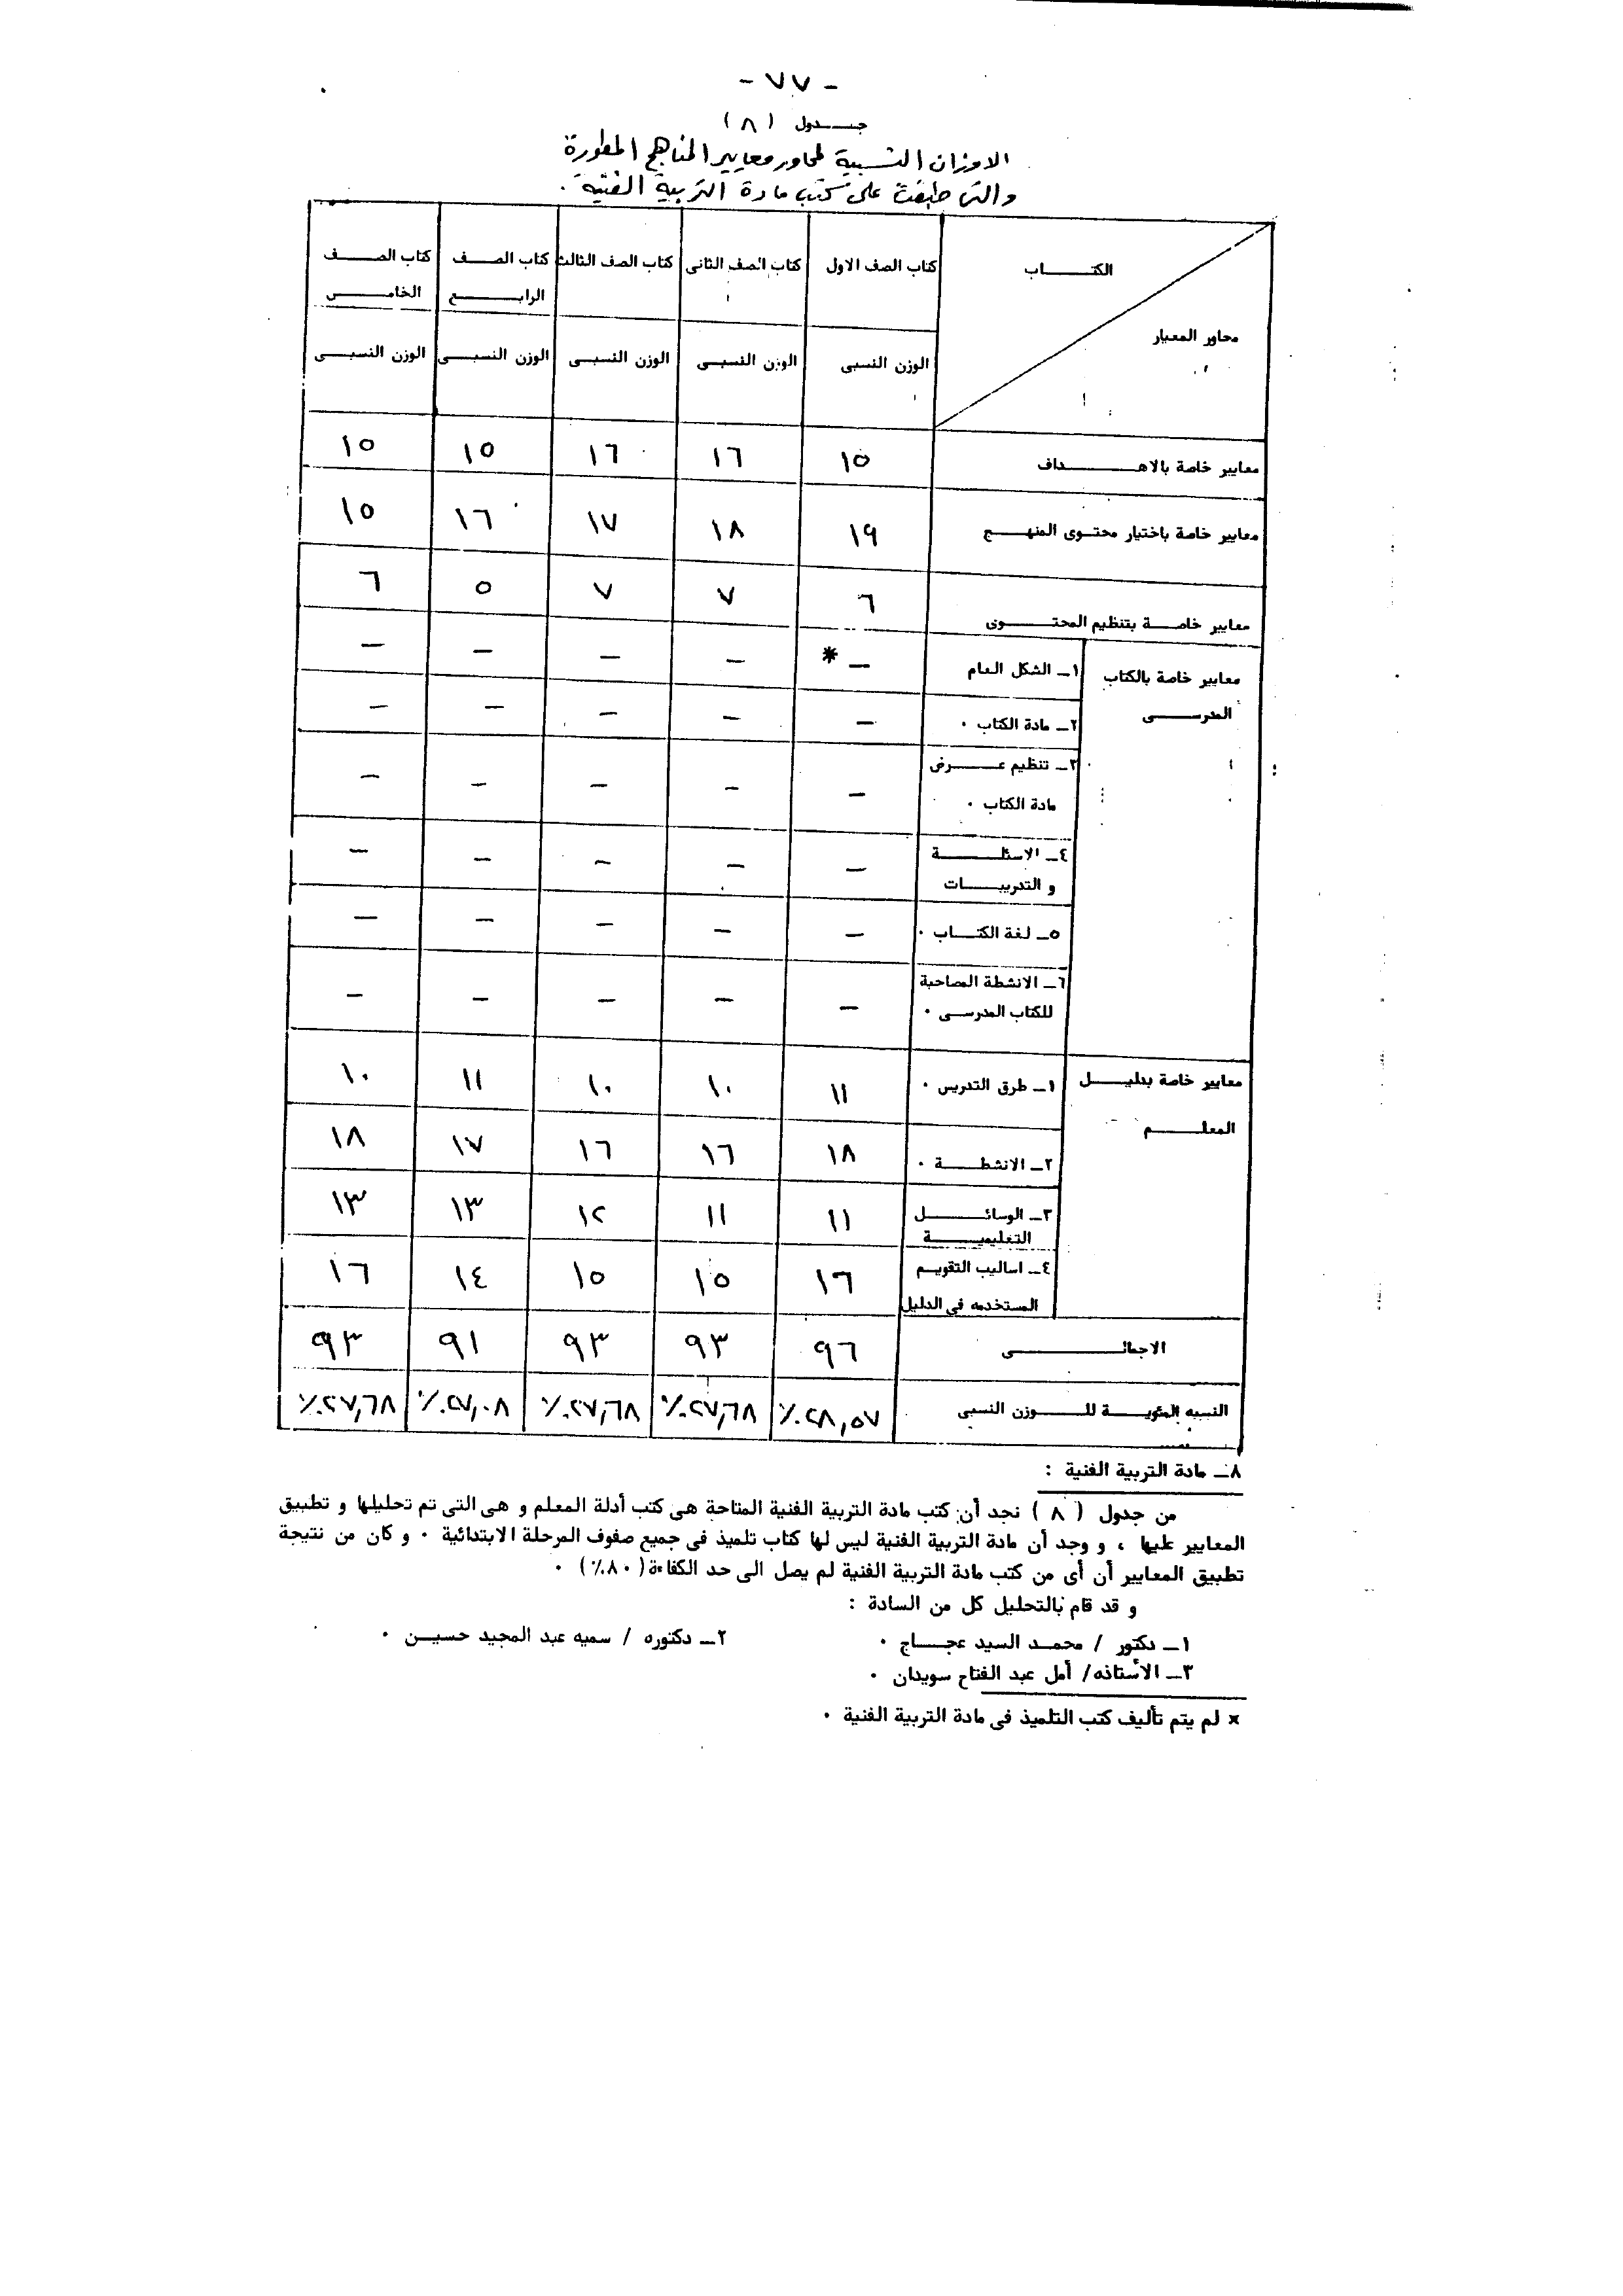 - ٧٧ -
جدول (٨)
الاوزان النسبية لمحاور معايير المناهج المطورة
والتى طبقت على كتب مادة التربية الفنية .
الكتاب
محاور المعيار
كتاب الصف الاول | كتاب الصف الثانى | كتاب الصف الثالث | كتاب الصف الرابع | كتاب الصف الخامس
الوزن النسبى | الوزن النسبى | الوزن النسبى | الوزن النسبى | الوزن النسبى
معايير خاصة بالاهداف | ١٥ | ١٦ | ١٦ | ١٥ | ١٥
معايير خاصة باختيار محتوى المنهج | ١٩ | ١٨ | ١٧ | ١٦ | ١٥
معايير خاصة بتنظيم المحتوى | ٦ | ٧ | ٧ | ٥ | ٦
معايير خاصة بالكتاب المدرسى
١ـ الشكل العام | - * | - | - | - | -
٢ـ مادة الكتاب . | - | - | - | - | -
٣ـ تنظيم عرض مادة الكتاب . | - | - | - | - | -
٤ـ الاسئلة و التدريبات | - | - | - | - | -
٥ـ لغة الكتاب . | - | - | - | - | -
٦ـ الانشطة المصاحبة للكتاب المدرسى . | - | - | - | - | -
معايير خاصة بدليل المعلم
١ـ طرق التدريس . | ١١ | ١٠ | ١٠ | ١١ | ١٠
٢ـ الانشطة . | ١٨ | ١٦ | ١٦ | ١٧ | ١٨
٣ـ الوسائل التعليمية | ١١ | ١١ | ١٢ | ١٣ | ١٣
٤ـ اساليب التقويم المستخدمه فى الدليل | ١٦ | ١٥ | ١٥ | ١٤ | ١٦
الاجمالى | ٩٦ | ٩٣ | ٩٣ | ٩١ | ٩٣
النسبه المئوية للوزن النسبى | ٢٨,٥٧٪ | ٢٧,٦٨٪ | ٢٧,٦٨٪ | ٢٧,٠٨٪ | ٢٧,٦٨٪
٨ـ مادة التربية الفنية :
من جدول ( ٨ ) نجد أن كتب مادة التربية الفنية المتاحة هى كتب أدلة المعلم و هى التى تم تحليلها و تطبيق
المعايير عليها ، و وجد أن مادة التربية الفنية ليس لها كتاب تلميذ فى جميع صفوف المرحلة الابتدائية . و كان من نتيجة
تطبيق المعايير أن أى من كتب مادة التربية الفنية لم يصل الى حد الكفاءة (٨٠٪) .
و قد قام بالتحليل كل من السادة :
١ـ دكتور / محمد السيد عجاج . ٢ـ دكتوره / سميه عبد المجيد حسين .
٣ـ الأستاذه/ أمل عبد الفتاح سويدان .
× لم يتم تأليف كتب التلميذ فى مادة التربية الفنية .